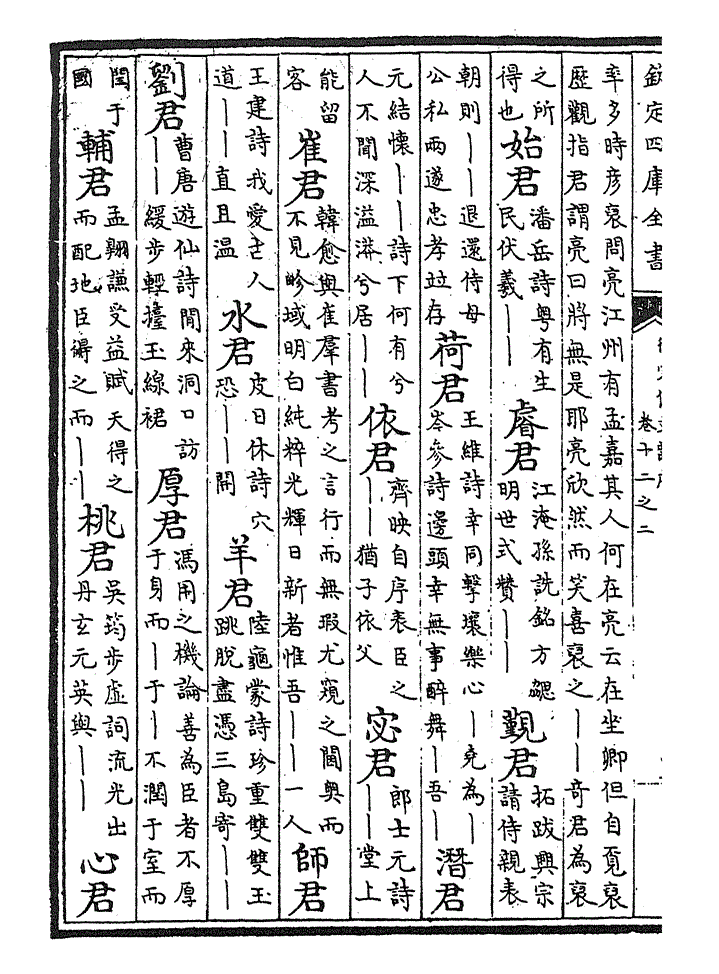 欽定四庫全書 卷十二之二
率多時彦裒問亮江州有孟嘉其人何在亮云在坐卿但自覔裒
歴觀指君謂亮曰將無是耶亮欣然而笑喜裒之——奇君為裒
之所得也 始君 潘岳詩粤有生民伏羲—— 睿君 江淹孫詵銘方勰明世式贊—— 覲君 拓跋興宗請侍親表
朝則——退還侍母公私兩遂忠孝竝存 荷君 王維詩幸同擊壤樂心—堯為—岑參詩邊頭幸無事醉舞—吾— 潛君
元結懷——詩下何有兮人不聞深溢漭兮居—— 依君 齊映自序表臣之——猶子依父 宓君 郎士元詩——堂上
能留客 崔君 韓愈與崔羣書考之言行而無瑕尤窺之閫奥而不見畛域明白純粹光輝日新者惟吾——一人 師君
王建詩我愛古人道——直且温 水君 皮日休詩穴恐——開 羊君 陸龜蒙詩珍重雙雙玉跳脱盡憑三島寄——
劉君 曹唐遊仙詩閒來洞口訪——緩步輕擡玉線裙 厚君 馮用之機論善為臣者不厚于身而—于—不潤于室而
閏于國 輔君 孟翺謙受益賦天得之而配地臣得之而—— 桃君 吳筠步虚詞流光出丹玄元英與—— 心君